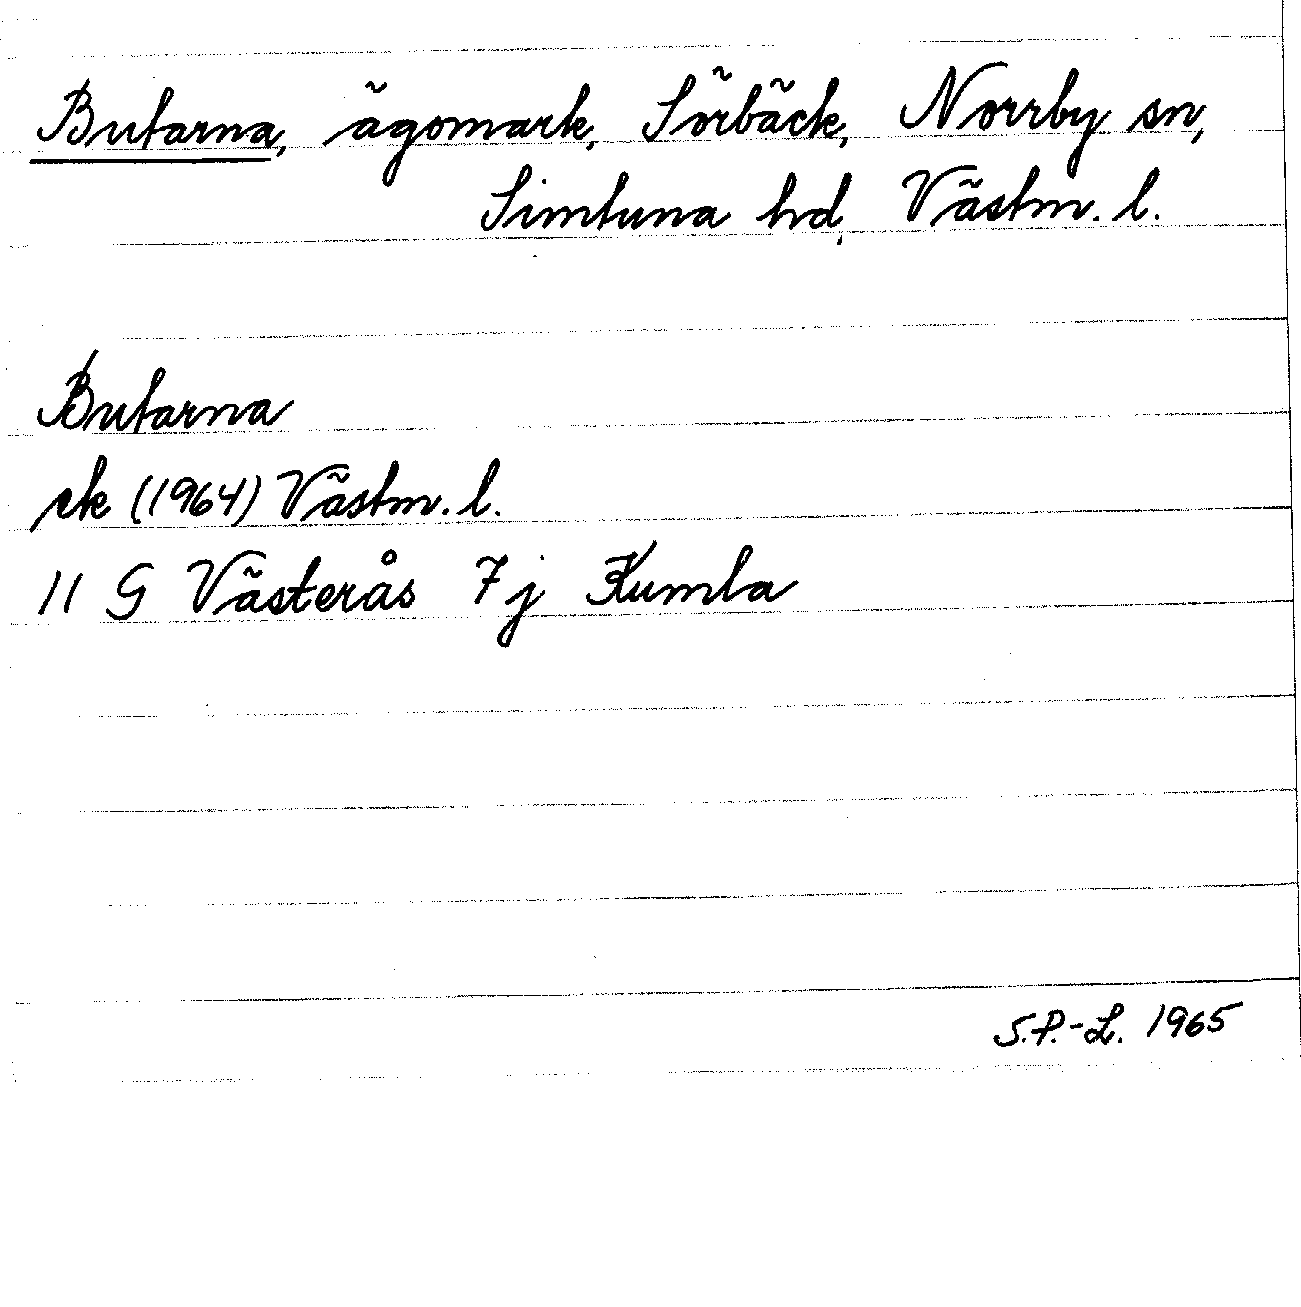 Butarna, ägomark, Sörbäck, Norrby sn,
Simtuna hd, Västm. l.
Butarna
ek (1964) Västm. l.
11 G Västerås 7 j Kumla
S.P.-L. 1965